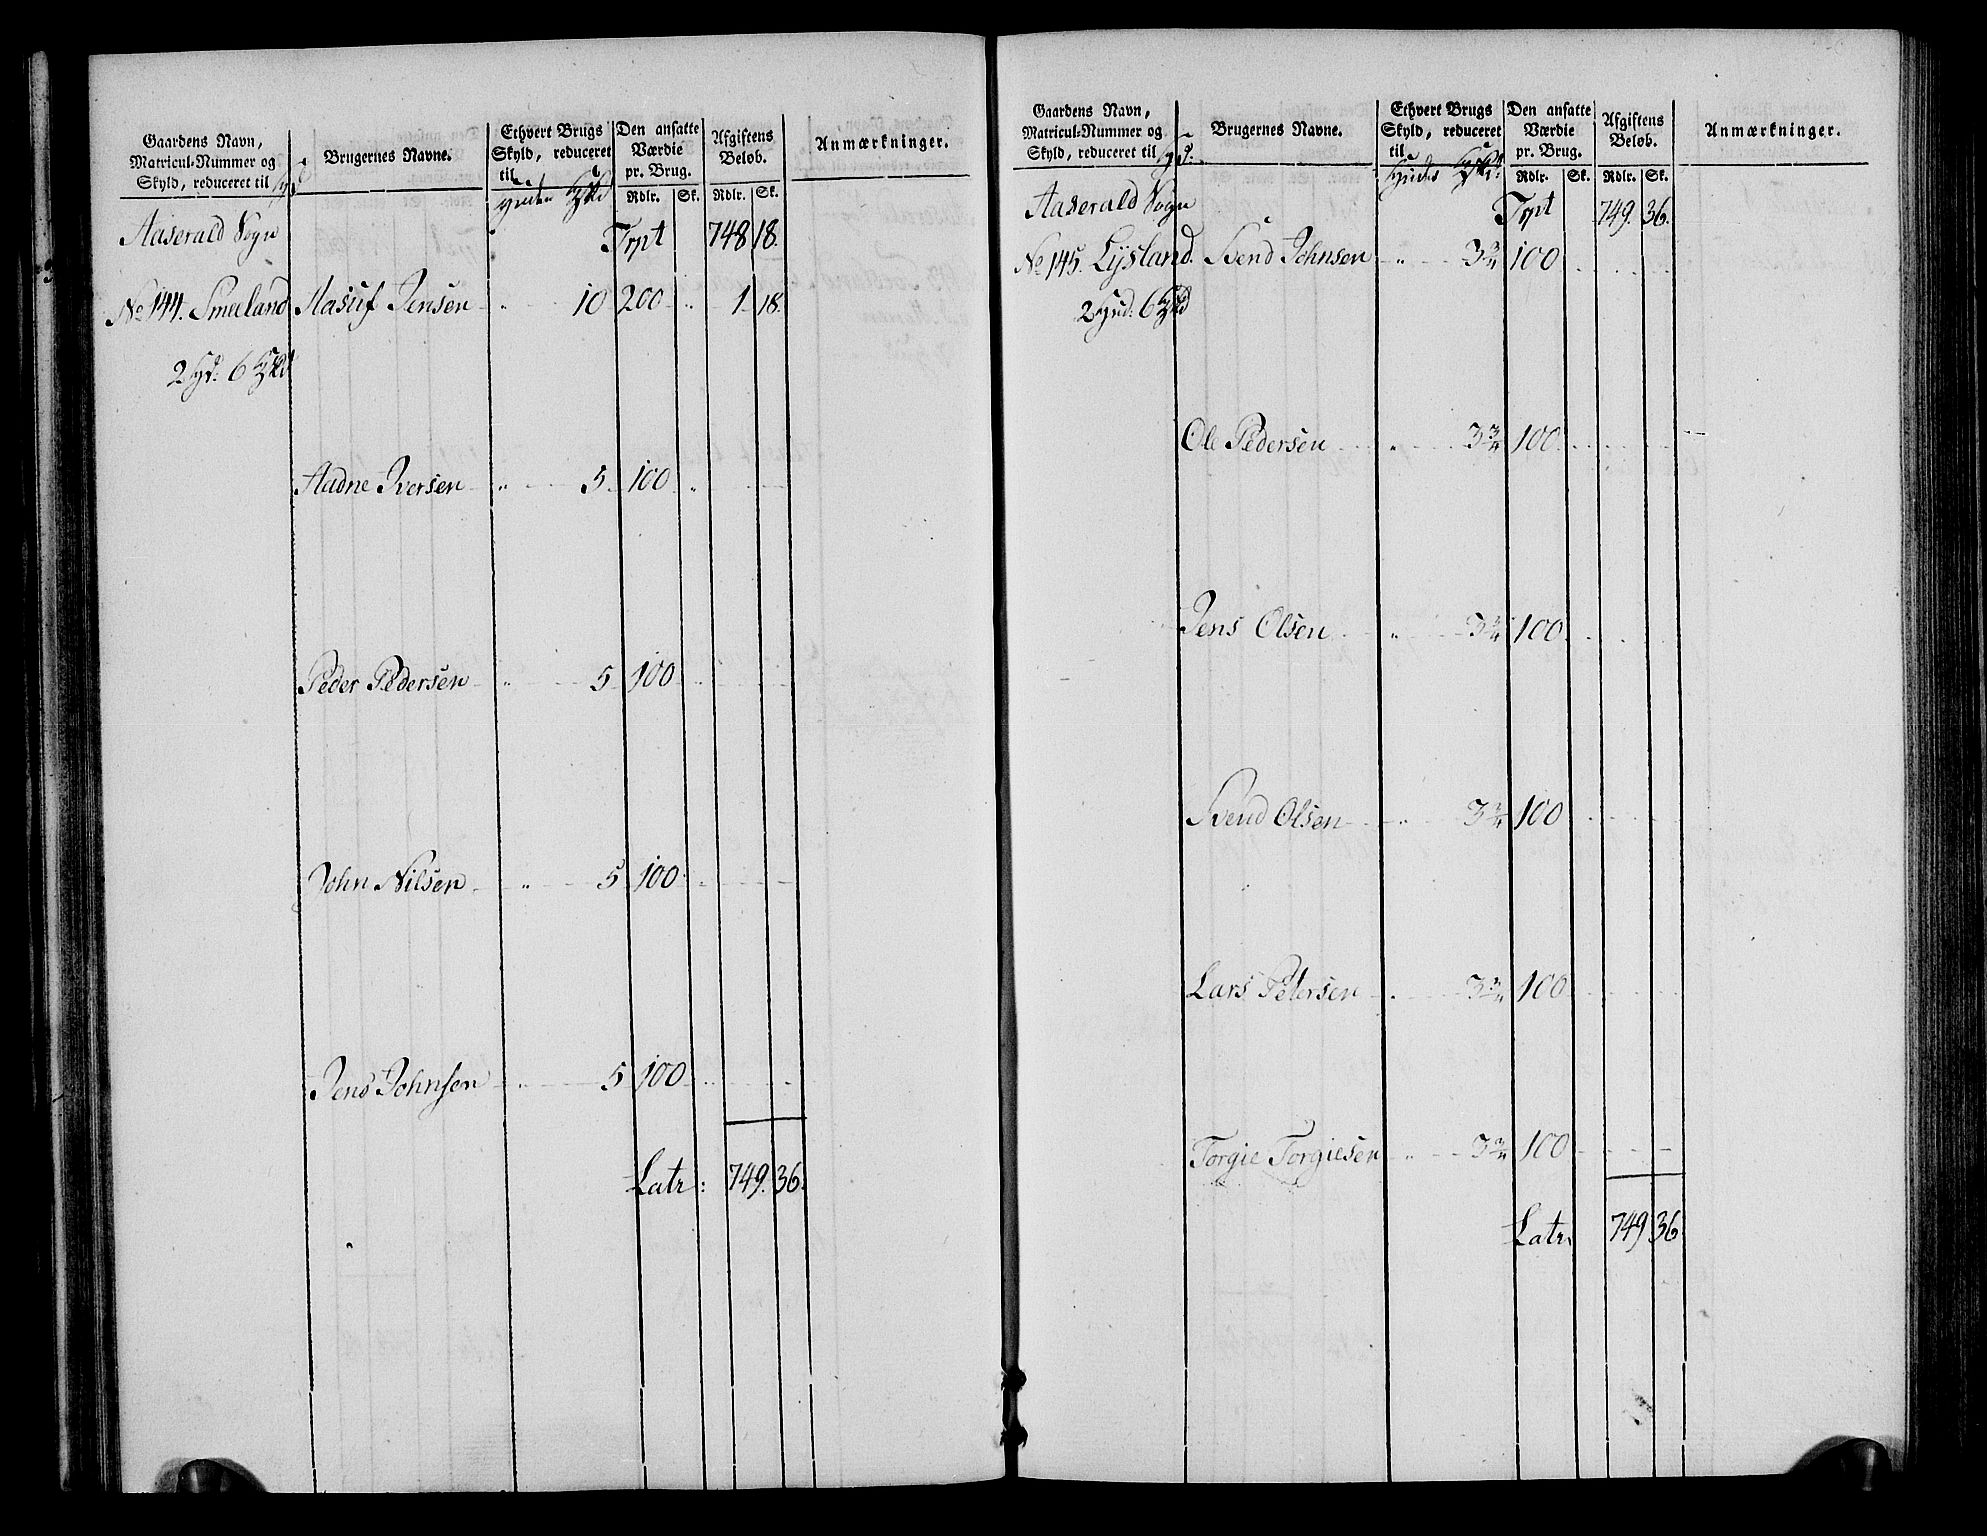 Gaardens Navn, Matricul-Nummer og Skyld, reduceret til Hd: | Brugernes Navne. | Ethvert Brugs Skyld, reduceret til Huder | Den ansatte Værdie pr. Brug. Rdlr. Sk. | Afgiftens Beløb. Rdlr. Sk. | Anmærkninger.
Aaserald Sogn Trpt 748 18.
No 144. Smeeland Aasuf Jensen " 10 200 " 1 18.
2 Hd: 6
Aadne Iversen " 5 100 "
Peder Pedersen " 5 100
John Nilsen " 5 100
Jens Johnsen " 5 100
Latr: 749. 36.
Gaardens Navn, Matricul-Nummer og Skyld, reduceret til Hd: | Brugernes Navne. | Ethvert Brugs Skyld, reduceret til Huder | Den ansatte Værdie pr. Brug. Rdlr. Sk. | Afgiftens Beløb. Rdlr. Sk. | Anmærkninger.
Aaserald Sogn Trpt 749. 36.
No 145. Lysland. Svend Johnsen " 3 3/4 100
2 Hud: 6
Ole Pedersen " 3 3/4 100
Jens Olsen " 3 3/4 100
Svend Olsen " 3 3/4 100
Lars Petersen " 3 3/4 100
Torgie Torgiesen " 3 3/4 100
Latr 749 36.